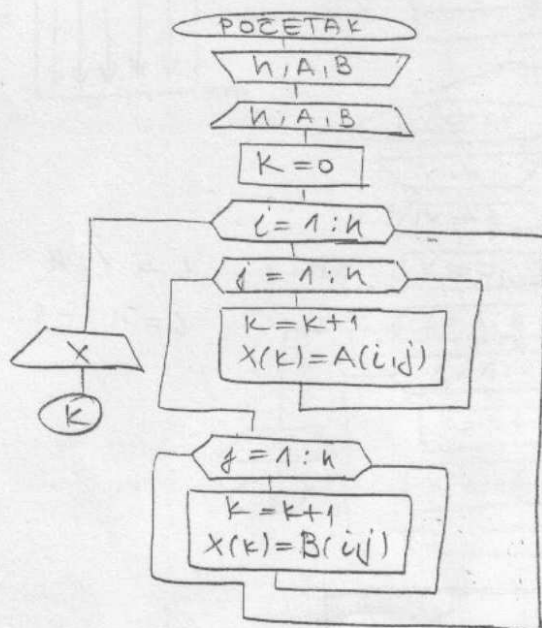 POČETAK
n, A, B
n, A, B
K = 0
i = 1 : n
j = 1 : n
K = K+1
X(K) = A(i,j)
X
K
j = 1 : n
K = K+1
X(K) = B(i,j)